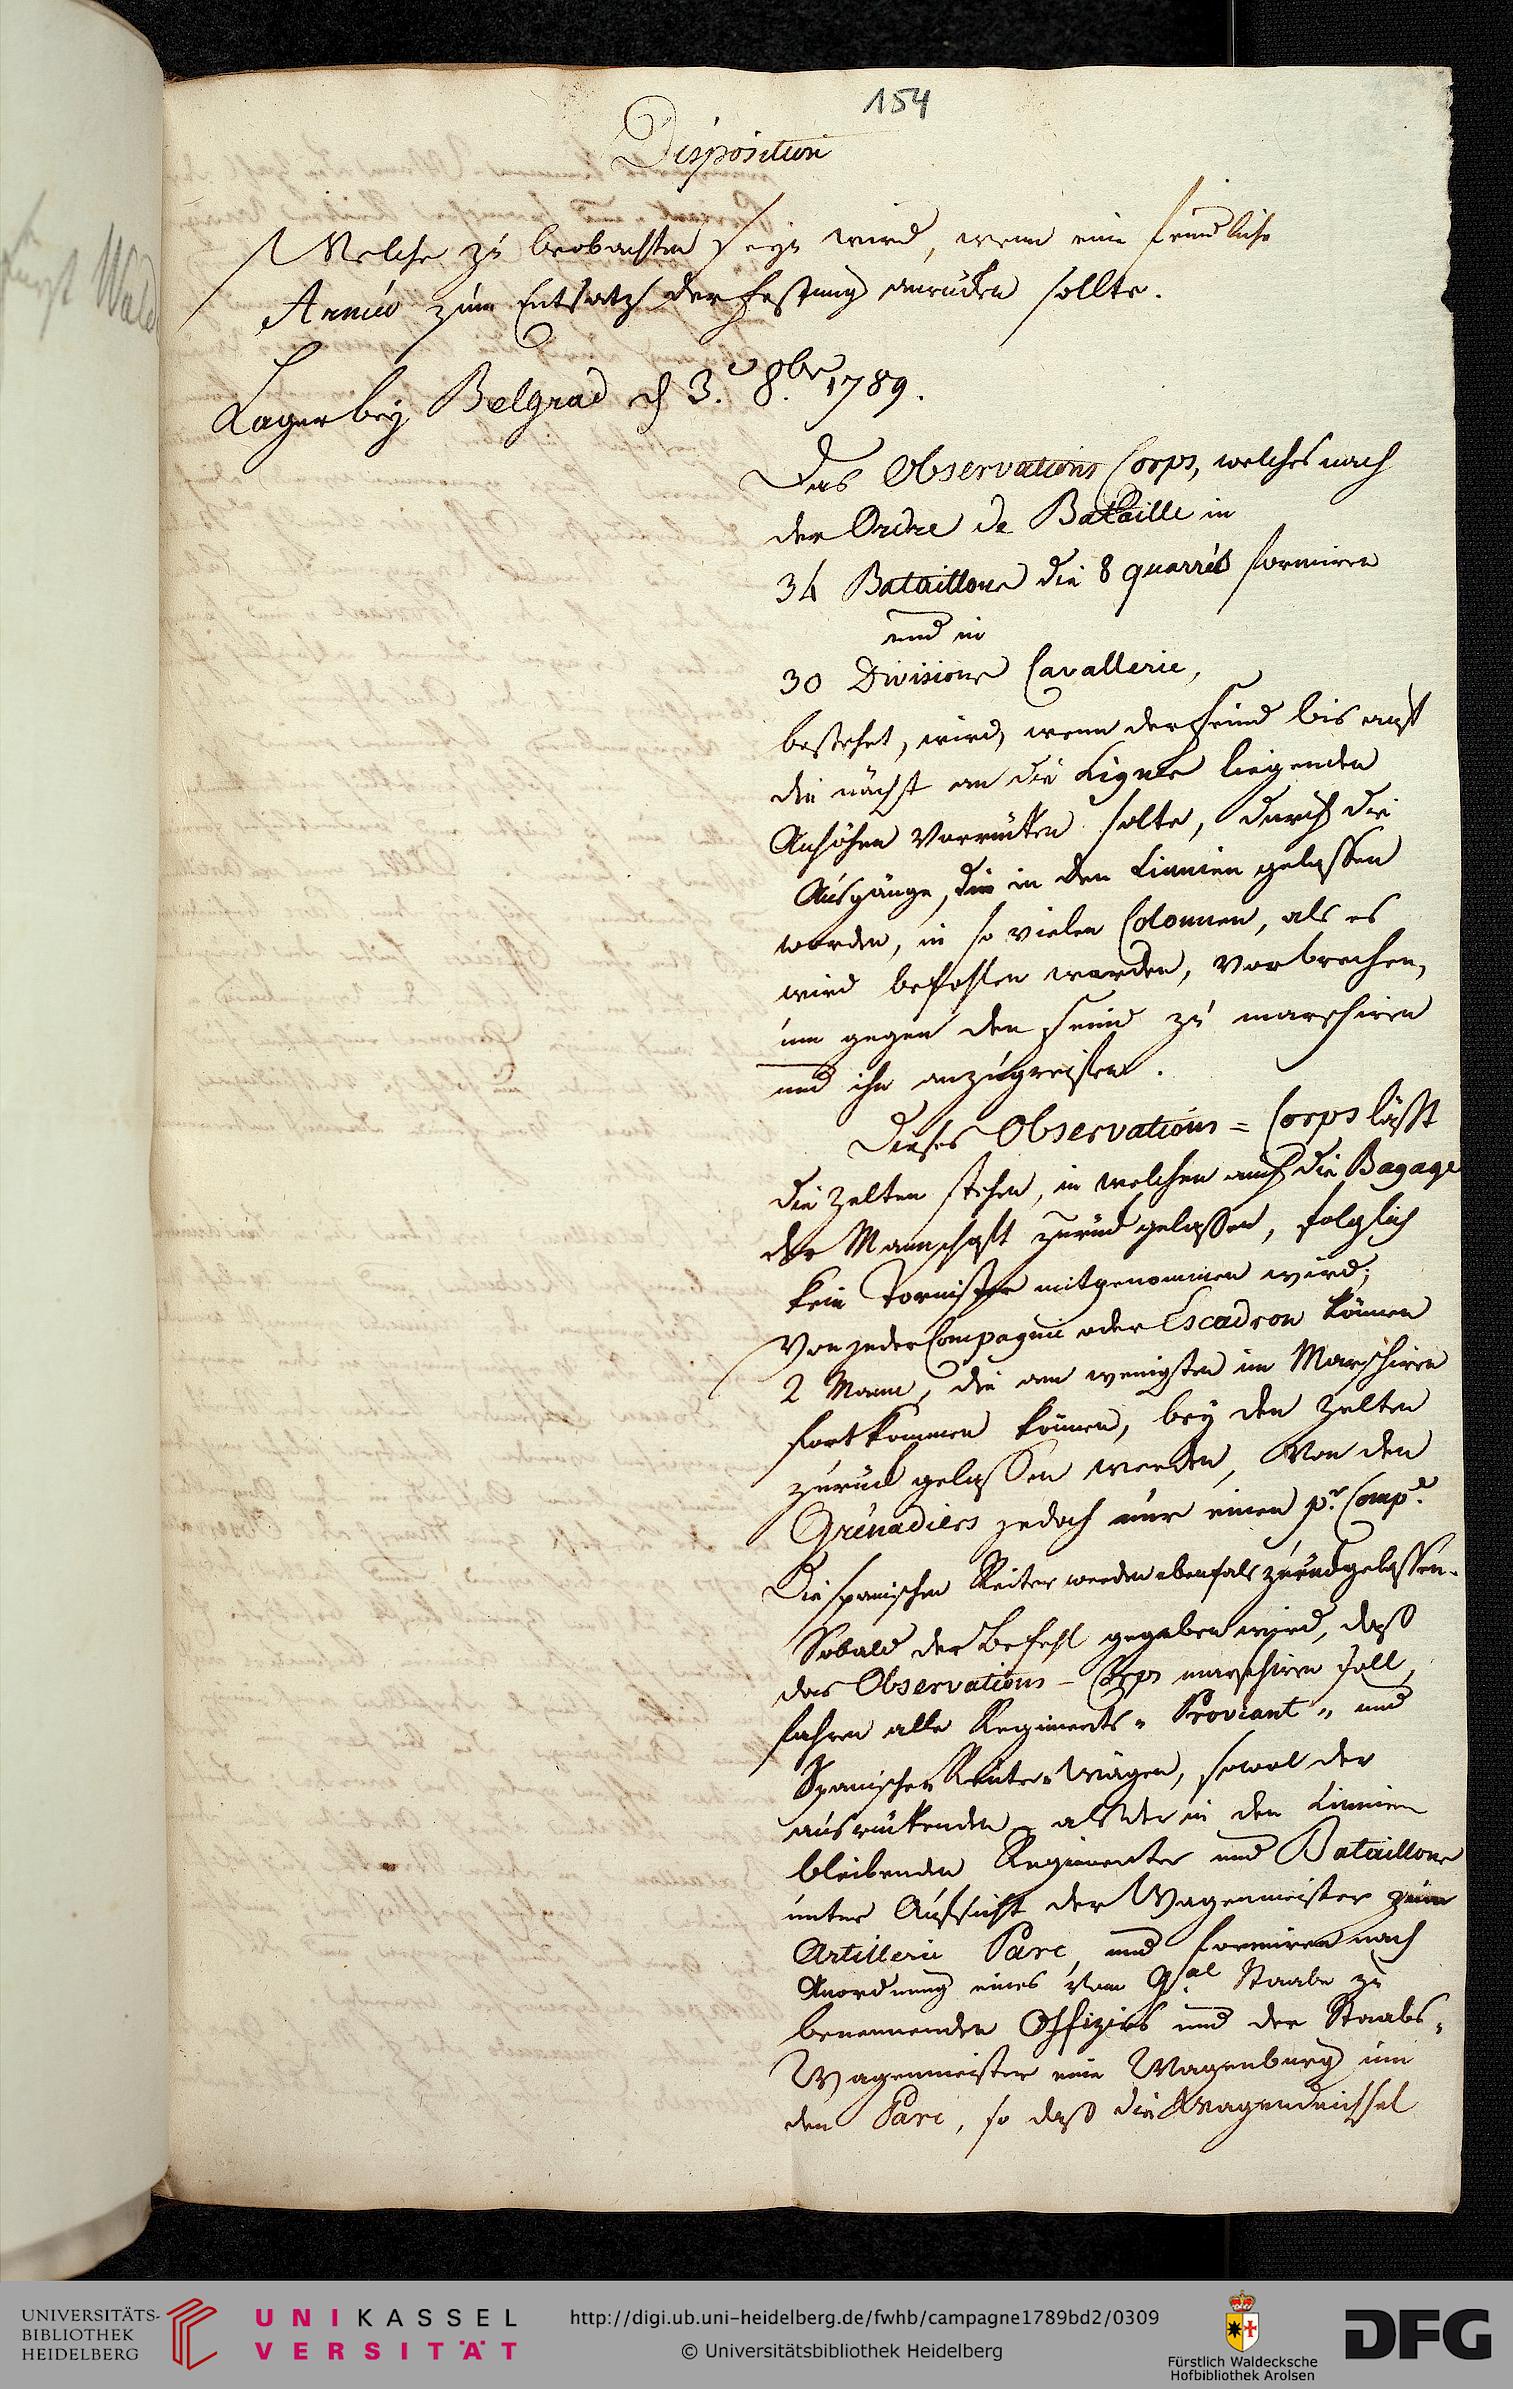 154
Disposition
Welche zu beobachten seyn wird, wenn eine feindliche
Armée zum Entsatz der Festung anrüken sollte.
Lager bey Belgrad d 3.t 8.br 1789.
Das Observations Corps, welches nach
der Ordre de Bataille in
34 Bataillons die 8 quarrés formiren
und in
30 Divisions Cavallerie,
bestehet, wird, wenn der Feind bis auf
die nächst an die Ligne liegenden
Anhöhen Vorrüken solte, durch die
Ausgänge, die in den Linnien gelassen
worden, in so vielen Colonnen, als es
wird befohlen werden, vorbrechen,
um gegen den Feind zu marschiren
und ihn anzugreifen.
Dieses Observations = Corps läßt
die Zelten stehen, in welchen auch die Bagage
der Mannschaft zurück gelassen, folglich
kein Tornister mitgenommen wird;
Von jeder Compagnie oder Escadron können
2 Mann, die am wenigsten im Marschiren
fortkommen können, bey den Zelten
zurück gelassen werden, Von den
Grenadiers jedoch nur einen pr. Comp.e
Die spanischen Reiter werden ebenfals zurückgelassen.
Sobald der Befehl gegeben wird, daß
das Observations - Corps marschiren soll,
fahren alle Regiments- Proviant - und
Spanische Reuter Wägen, sowol der
ausrükenden, als der in den Linnien
bleibenden Regimenter und Bataillons
unter Aufsicht der Wagenmeister zum
Artillerie Parc, und formiren nach
Anordnung eines vom G.al Staabe zu
benennenden Offiziers und der Staabs-
Wagenmeister eine Wagenburg um
den Parc, so daß die Wagendeichsel
UNIVERSITÄTS-
BIBLIOTHEK
HEIDELBERG
UNIKASSEL
VERSITÄT
http://digi.ub.uni-heidelberg.de/fwhb/campagne1789bd2/0309
© Universitätsbibliothek Heidelberg
Fürstlich Waldecksche
Hofbibliothek Arolsen
DFG